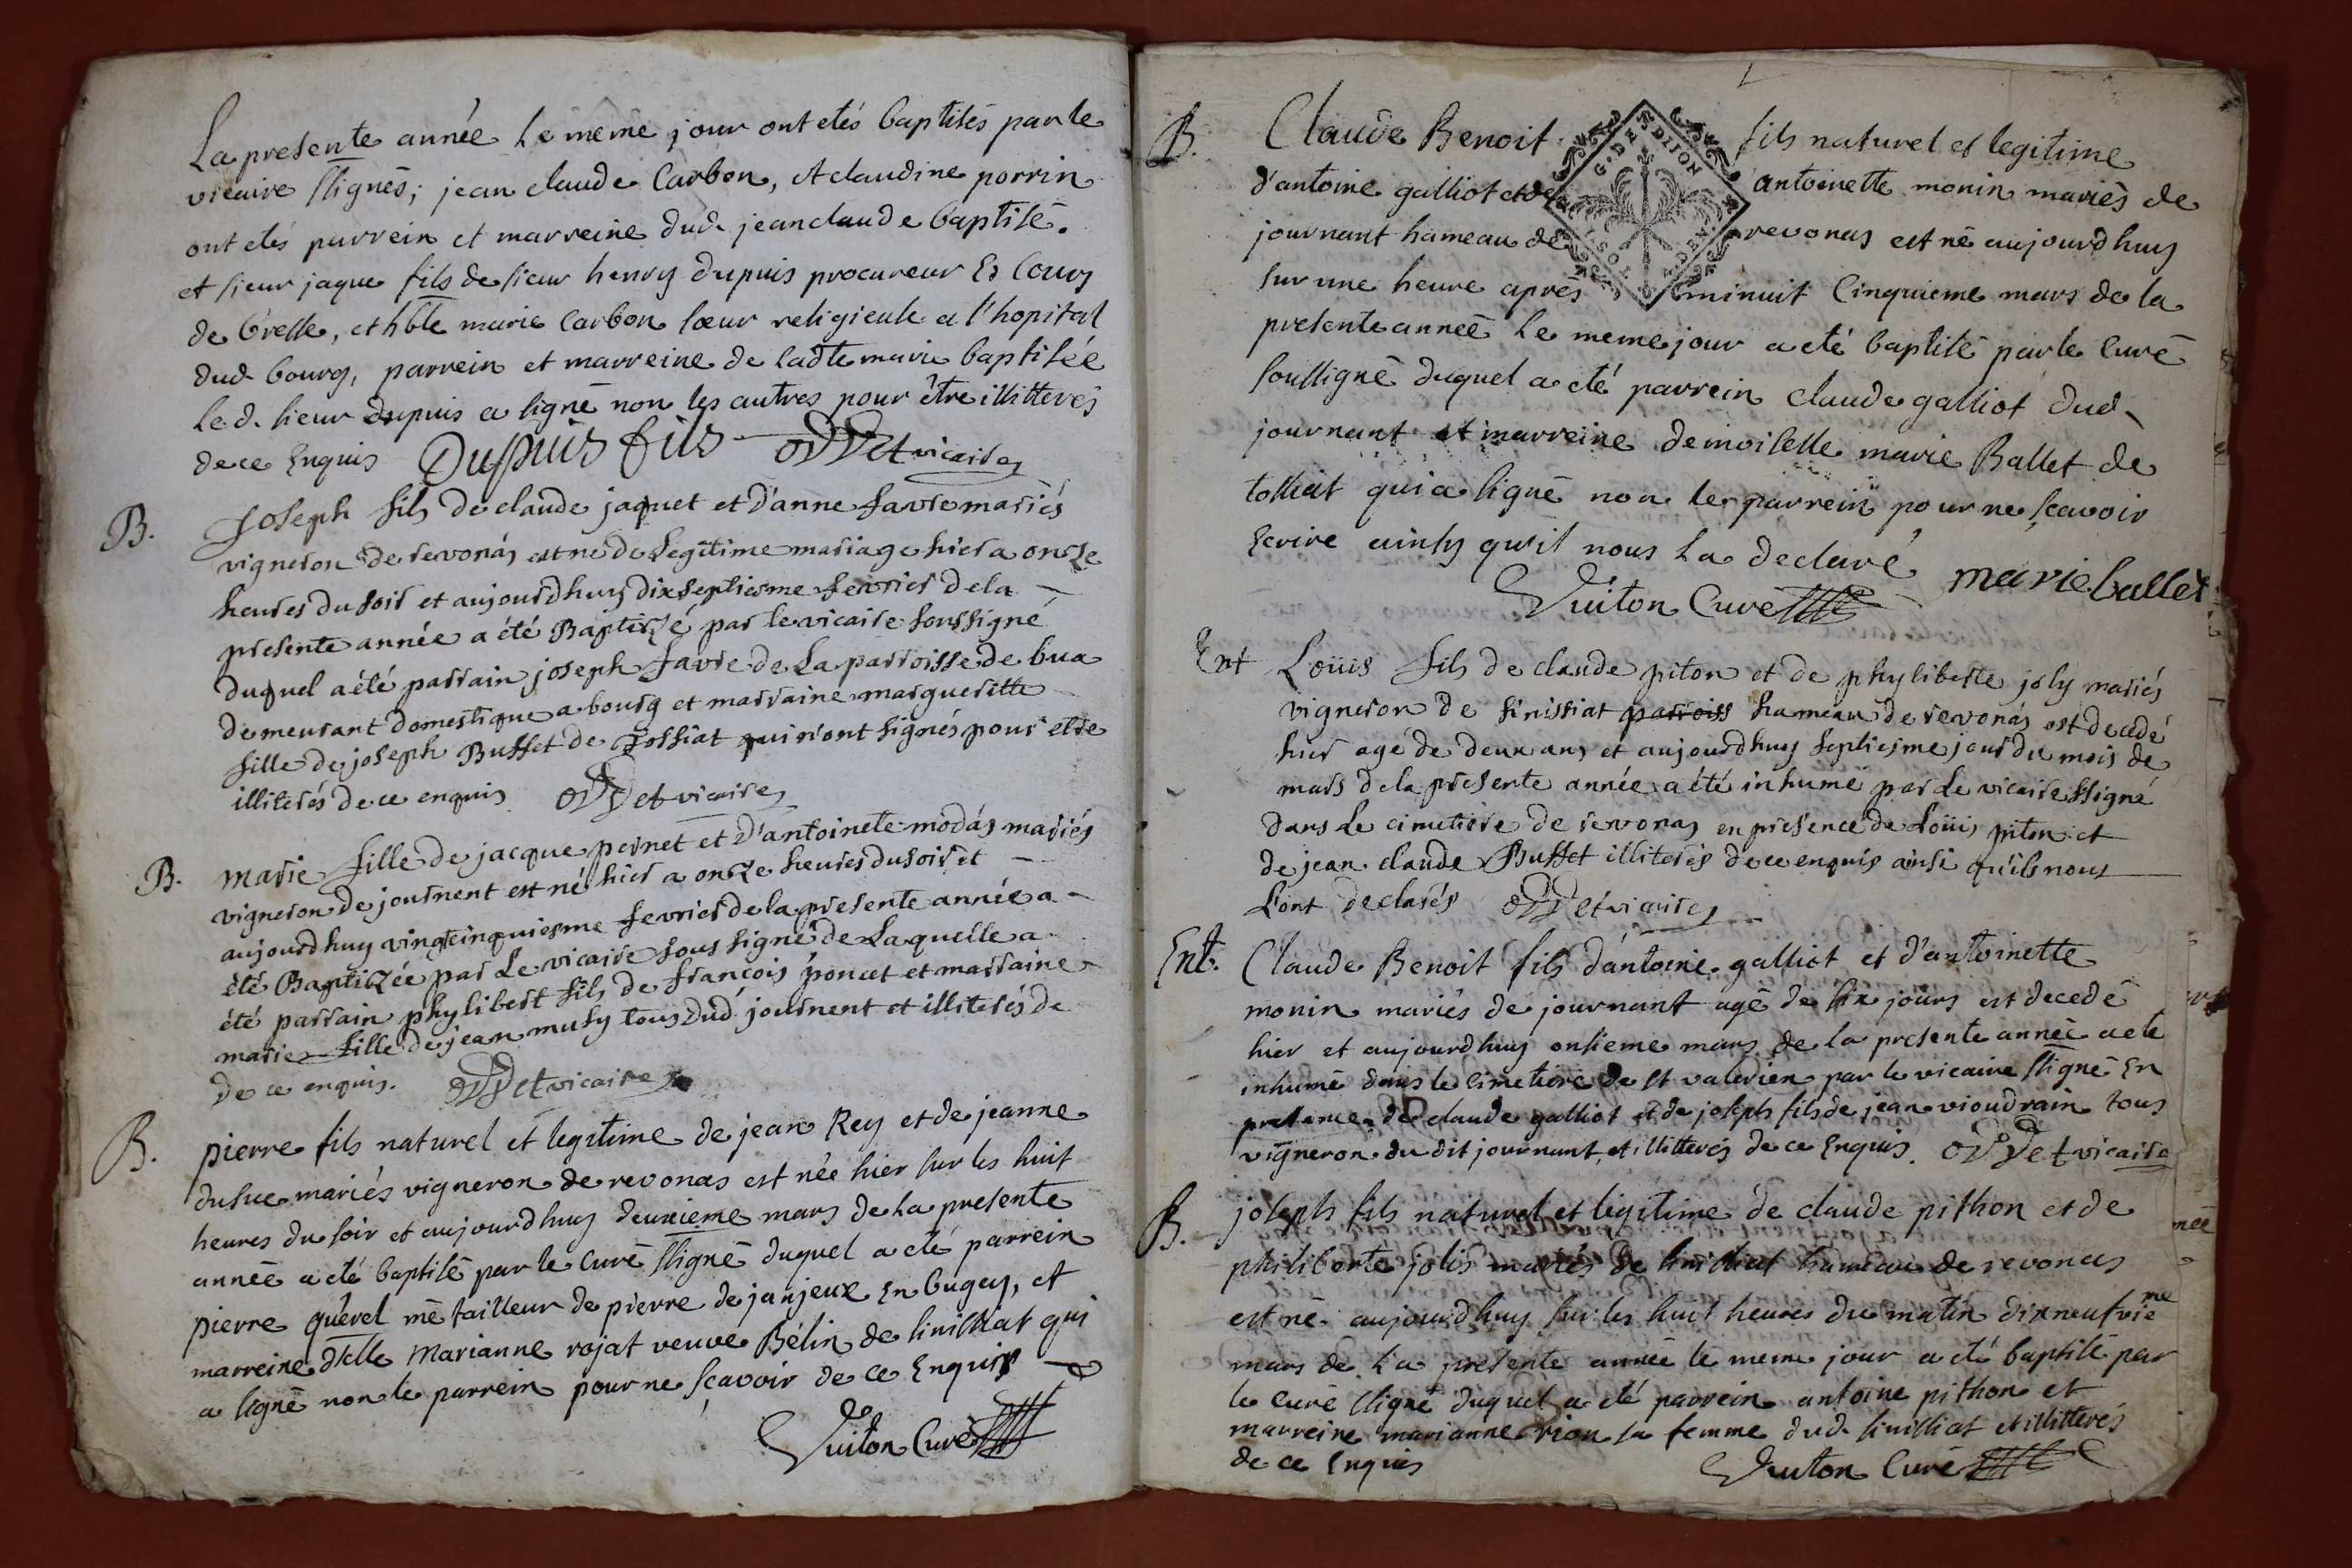 La presente année le méme jour ont etés baptisés par le
vicaire ssignés; jean claude Carbon, et claudine perrin
ont etés parrein et marreine dud. jean claude baptisé.
et sieur jaque fils de sieur henry dupuis procureur Es Cours
de bresse, et hble marie Carbon sœur religieuse a l'hopital
dud. bourg, parrein et marreine de ladte marie baptisée
le d. sieur dupuis a signé non les autres pour être illitterés
de ce Enquis Dupuis fils vicaire
B. Joseph fils de claude jaquet et d'anne favre mariés
vigneron de revonas est né de Legitime mariage hier a onze
heures du soir et aujourdhuy dixseptiesme fevrier de la
presente année a été Baptizé par le vicaire soussigné
duquel a été parrain joseph favre de La parroisse de bua
demeurant domestique a bourg et marraine margueritte
fille de joseph Buffet de Fossiat qui n'ont signés pour etre
illiterés de ce enquis vicaire
B. marie fille de jacque pernet et d'antoinete modas mariés
vigneron de journent est né hier a onze heures du soir et
aujourdhuy vingtcinquiesme fevrier de la presente année a
été Baptizée par Le vicaire sous signé de Laquelle a
été parrain phylibert fils de françois poncet et marraine
marie fille de jean musy tous dud. journent et illiterés de
de ce enquis. vicaire
B. pierre fils naturel et legitime de jean Rey et de jeanne
dusue mariés vigneron de revonas est née hier sur les huit
heures du soir et aujourdhuy deuxieme mars de la presente
année a eté baptisé par le Curé ssigné duquel a eté parrein
pierre querel mē tailleur de pierre de janjeux En bugey, et
marreine dlle Marianne rojat veuve Bélin de sinissiat qui
a signé non le parrein pour ne sçavoir de ce Enquis
Vuiton Curé
B. Claude Benoit fils naturel et legitime
d'antoine galliot et de antoinette monin mariés de
journant hameau de revonas est né aujourdhuy
sur une heure aprés minuit Cinquieme mars de la
presente anneé le meme jour a eté baptisé par le Curé
soussigné duquel a eté parrein claude galliot dud.
journant et marreine demoiselle marie Ballet de
tossiat qui a signé non le parrein pour ne sçavoir
Ecrire ainsy qu'il nous la declaré marie ballet
Vuiton Curé
G. DE DIJON
Ent Loüis fils de claude piton et de phyliberte joly mariés
vigneron de sinissiat parroiss hameau de revonas est decedé
hier agé de deux ans et aujourdhuy septiesme jour du mois de
mars de la presente année a été inhumé par Le vicaire ssigné
dans Le cimetiere de revonas en presence de Loüis piton et
de jean claude Buffet illiterés de ce enquis ainsi qu'ils nous
L'ont declarés vicaire
Ent. Claude Benoit fils d'antoine galliot et d'antoinette
monin mariés de journant agé de six jours est decedé
hier et aujourdhuy onsieme mars de la presente année a ete
inhumé dans le Cimetiere de st valerien par le vicaire ssigné En
presence de claude galliot et de joseph fils de jean vioudrain tous
vigneron du dit journant, et illitterés de ce Enquis. vicaire
B. joseph fils naturel et legitime de claude pithon et de
philiberte jolis mariés de sinissiat hameau de revonas
est né aujourdhuy sur les huit heures du matin dixneufvieme
mars de La presente année le meme jour a eté baptisé par
le curé ssigné duquel a eté parrein antoine pithon et
marreine marianne rion sa femme dud. sinissiat et illitterés
de ce Enquis Vuiton Curé